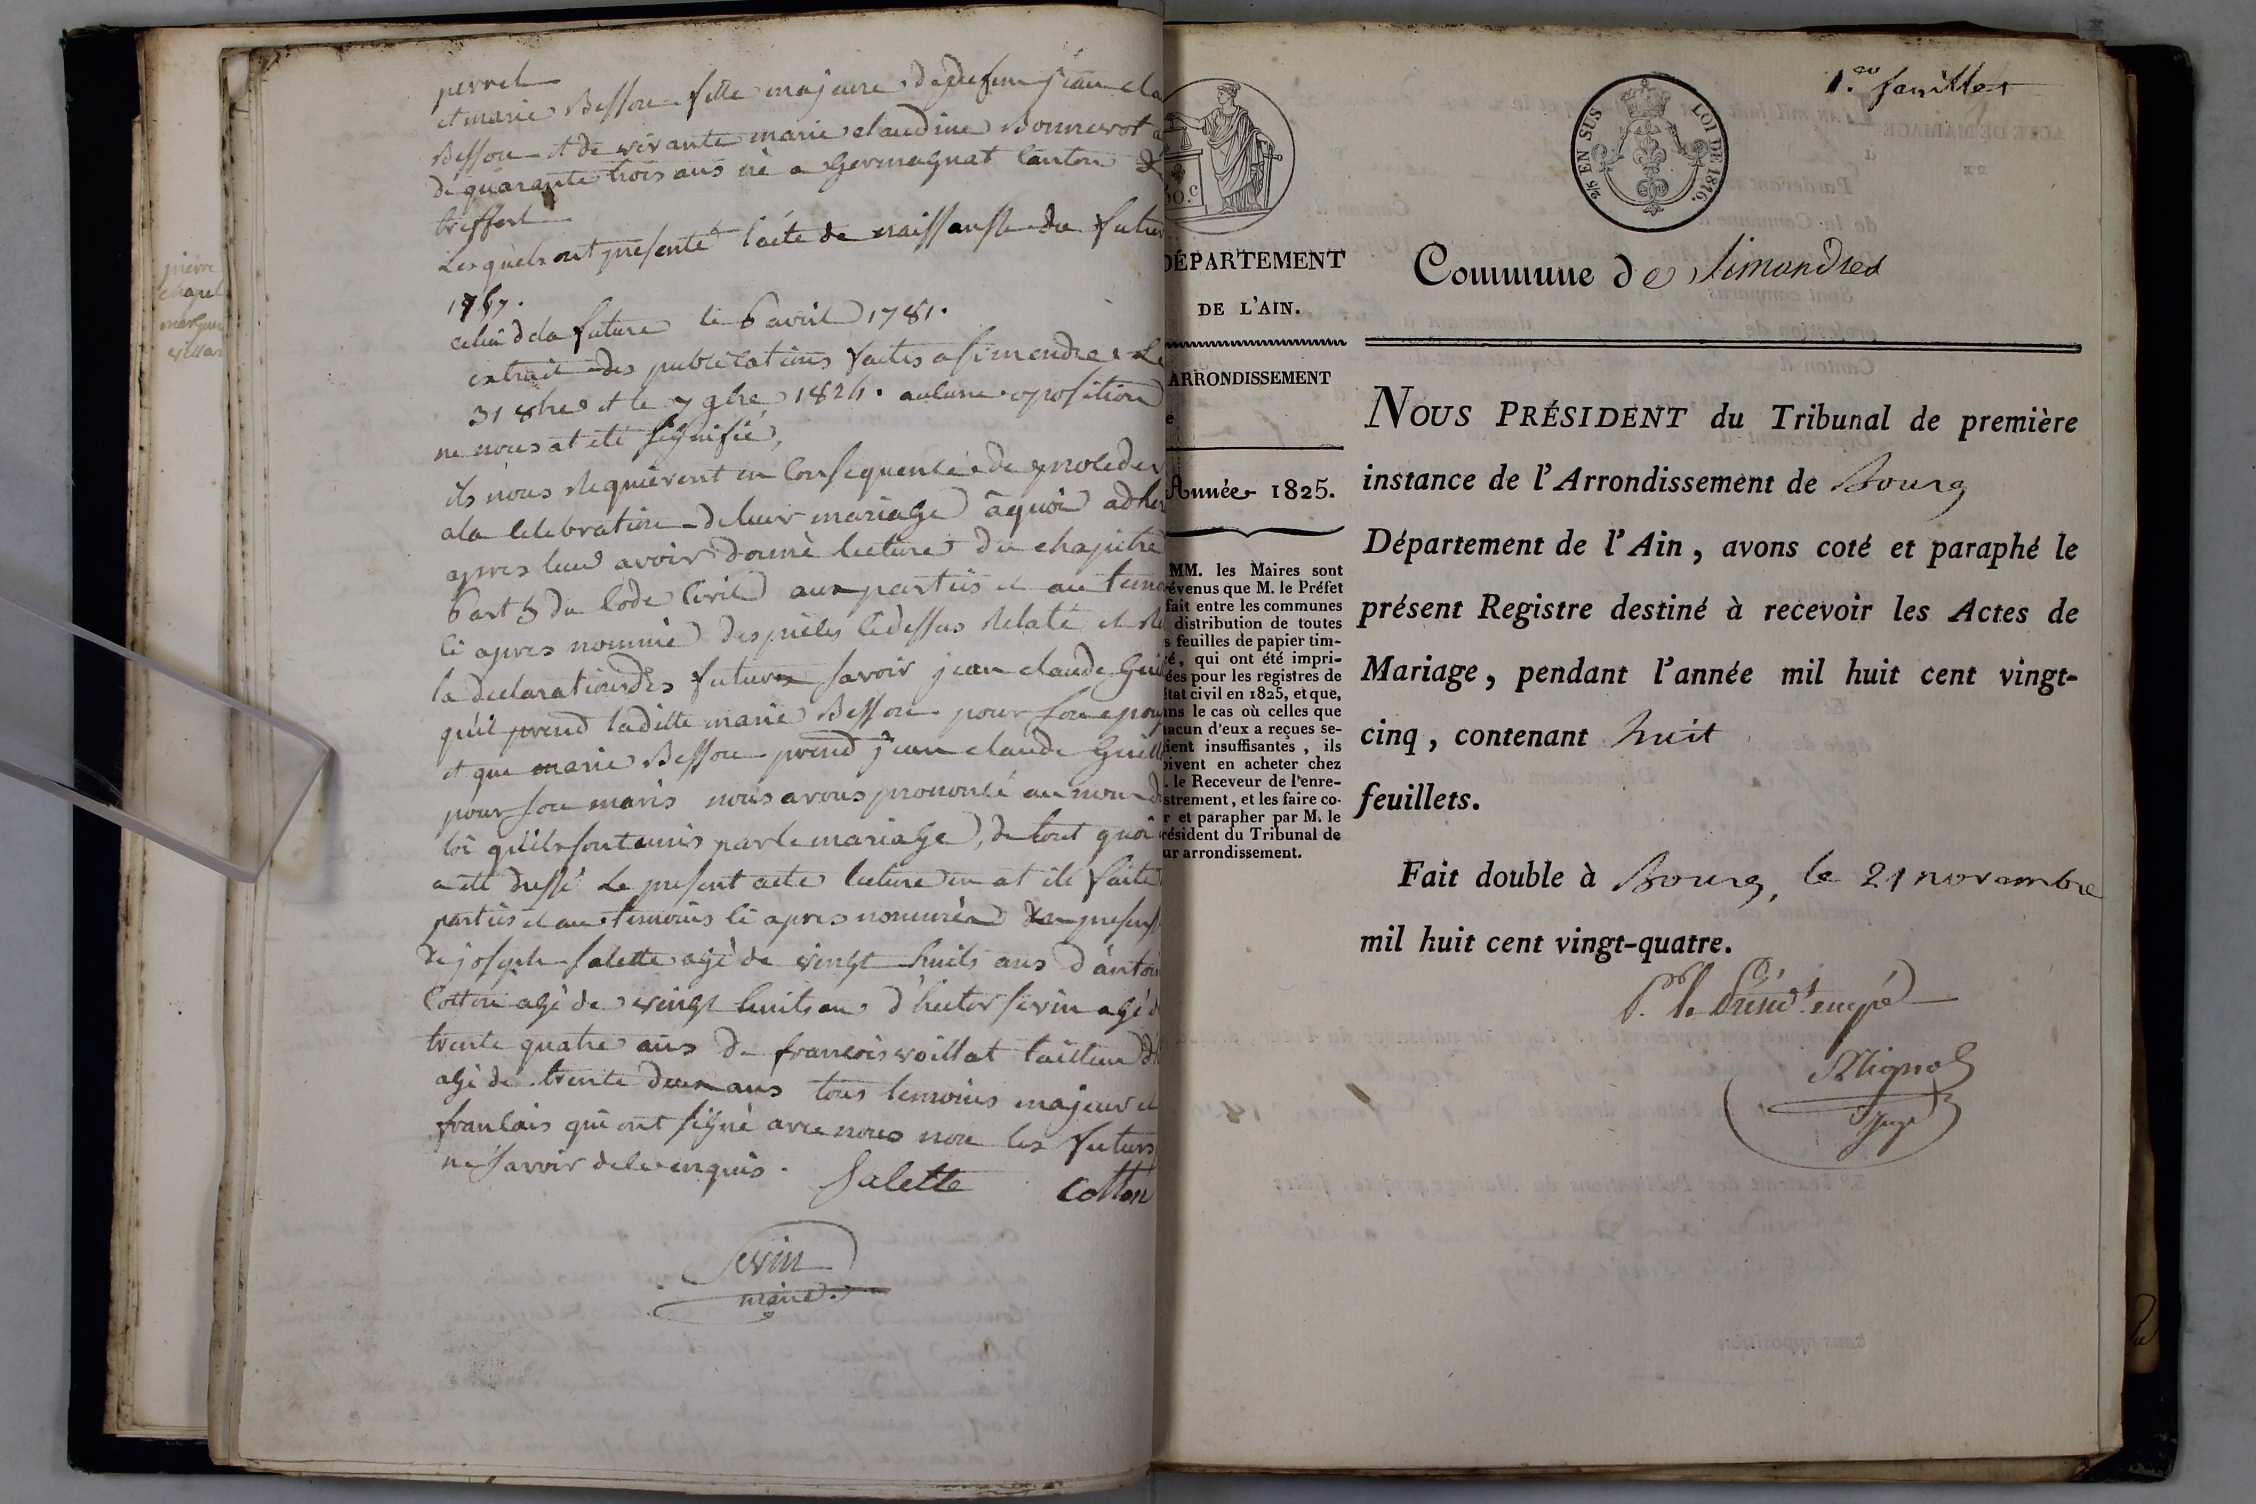 pierre
chapel
perret
et marie Besson fille majeure de defun jean cla
Besson et de vivante marie claudine Bonnevot
de quarante trois ans né a Germagnat Canton de
treffort
Lesquels ont présenté l'acte de naissansse du futur
1767.
celui de la future le 6 avril 1781.
extrait des publications faites a simandre Le
31 8bre et le 7 9bre 1824. aucune oposition
ne nous at eté signifié,
ils nous Requièrent en Consequence de proceder
a la celebration de leur mariage a quoi adher
apres leur avoir donné lecture du chapitre
6 art 5 du Code Civil aux parties et au temo
ci apres nommé des pièces cidessus Relaté et Re
la declaration des futurs savoir jean claude Guil
qu'il prend laditte marie Besson pour son epou
et que marie Besson prend jean claude Guill
pour son maris nous avous prononcé au nom de
loi qu'ils sont unis par le mariage, de tout quoi
a eté dressé Le present acte lecture en at eté faite
parties et au temoins ci apres nommés en presens
de joseph Salette agé de vingt huits ans d'antoin
Cotton agé de vingt huits ans d'hector sevin agé d
trente quatre ans de françois voillat tailleur d
agé de trente deux ans tous temoins majeur et
francais qui ont signé avec nous non les futurs
ne savoir de ce enquis.
Salette Cotton
Sevin
maire
1.er feuillet
2/5 EN SUS LOI DE 1816.
50.c
DÉPARTEMENT
DE L'AIN.
ARRONDISSEMENT
e
Année 1825.
MM. les Maires sont
évenus que M. le Préfet
fait entre les communes
distribution de toutes
s feuilles de papier tim-
é, qui ont été impri-
ées pour les registres de
état civil en 1825, et que,
ans le cas où celles que
acun d'eux a reçues se-
ient insuffisantes, ils
oivent en acheter chez
. le Receveur de l'enre-
strement, et les faire co-
r et parapher par M. le
résident du Tribunal de
ur arrondissement.
Commune de Simandres
NOUS PRÉSIDENT du Tribunal de première
instance de l'Arrondissement de Bourg
Département de l'Ain, avons coté et paraphé le
présent Registre destiné à recevoir les Actes de
Mariage, pendant l'année mil huit cent vingt-
cinq, contenant huit
feuillets.
Fait double à Bourg, le 21 novembre
mil huit cent vingt-quatre.
P.r le Présid.t empé
Juge